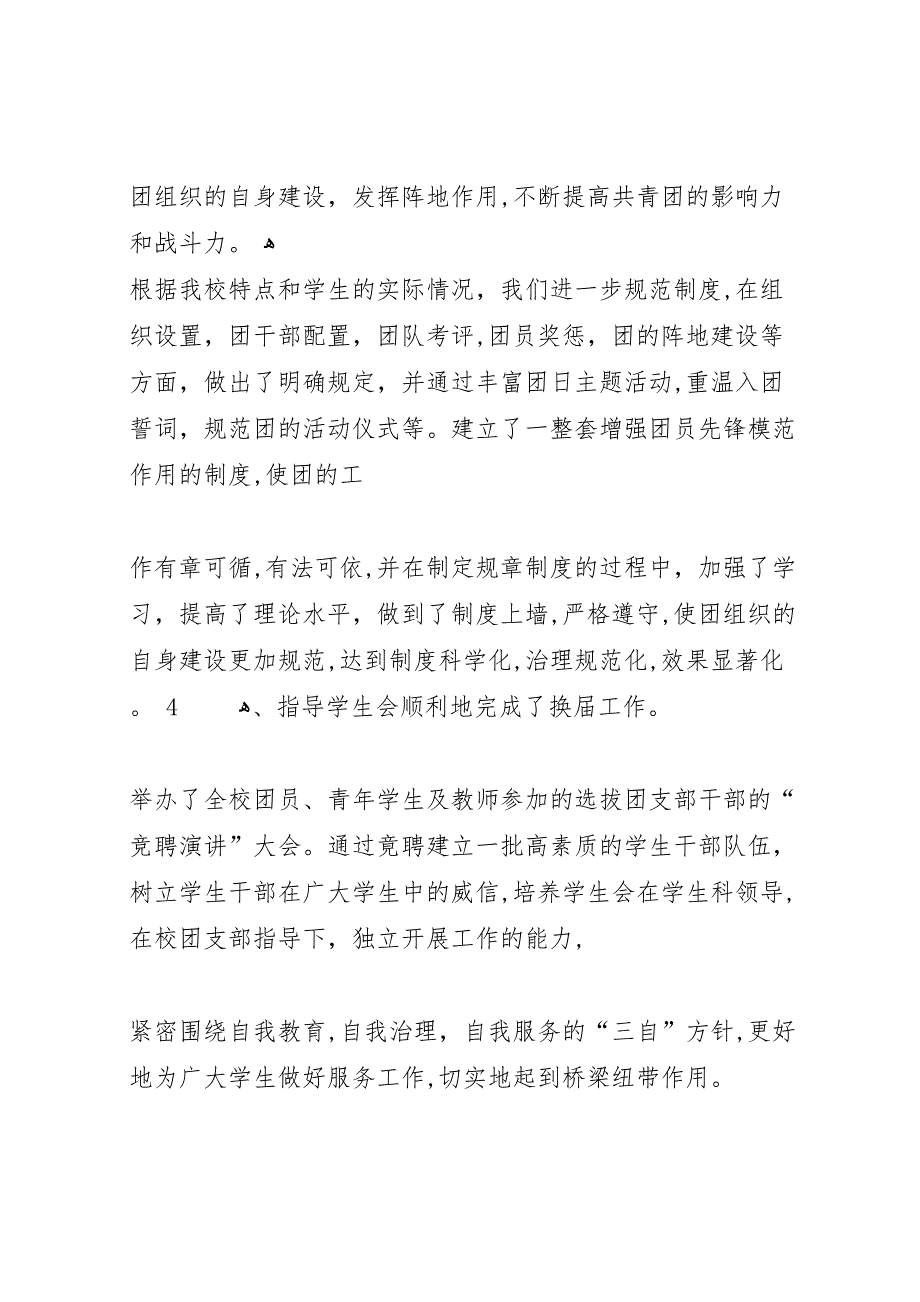 团组织的自身建设，发挥阵地作用,不断提高共青团的影响力
和战斗力。 ﻫ
根据我校特点和学生的实际情况，我们进一步规范制度,在组
织设置，团干部配置，团队考评,团员奖惩，团的阵地建设等
方面，做出了明确规定，并通过丰富团日主题活动,重温入团
誓词，规范团的活动仪式等。建立了一整套增强团员先锋模范
作用的制度,使团的工
作有章可循,有法可依,并在制定规章制度的过程中，加强了学
习，提高了理论水平，做到了制度上墙,严格遵守,使团组织的
自身建设更加规范,达到制度科学化,治理规范化,效果显著化
。 4 ﻫ、指导学生会顺利地完成了换届工作。
举办了全校团员、青年学生及教师参加的选拔团支部干部的“
竞聘演讲”大会。通过竟聘建立一批高素质的学生干部队伍，
树立学生干部在广大学生中的威信,培养学生会在学生科领导,
在校团支部指导下，独立开展工作的能力,
紧密围绕自我教育,自我治理，自我服务的“三自”方针,更好
地为广大学生做好服务工作,切实地起到桥梁纽带作用。